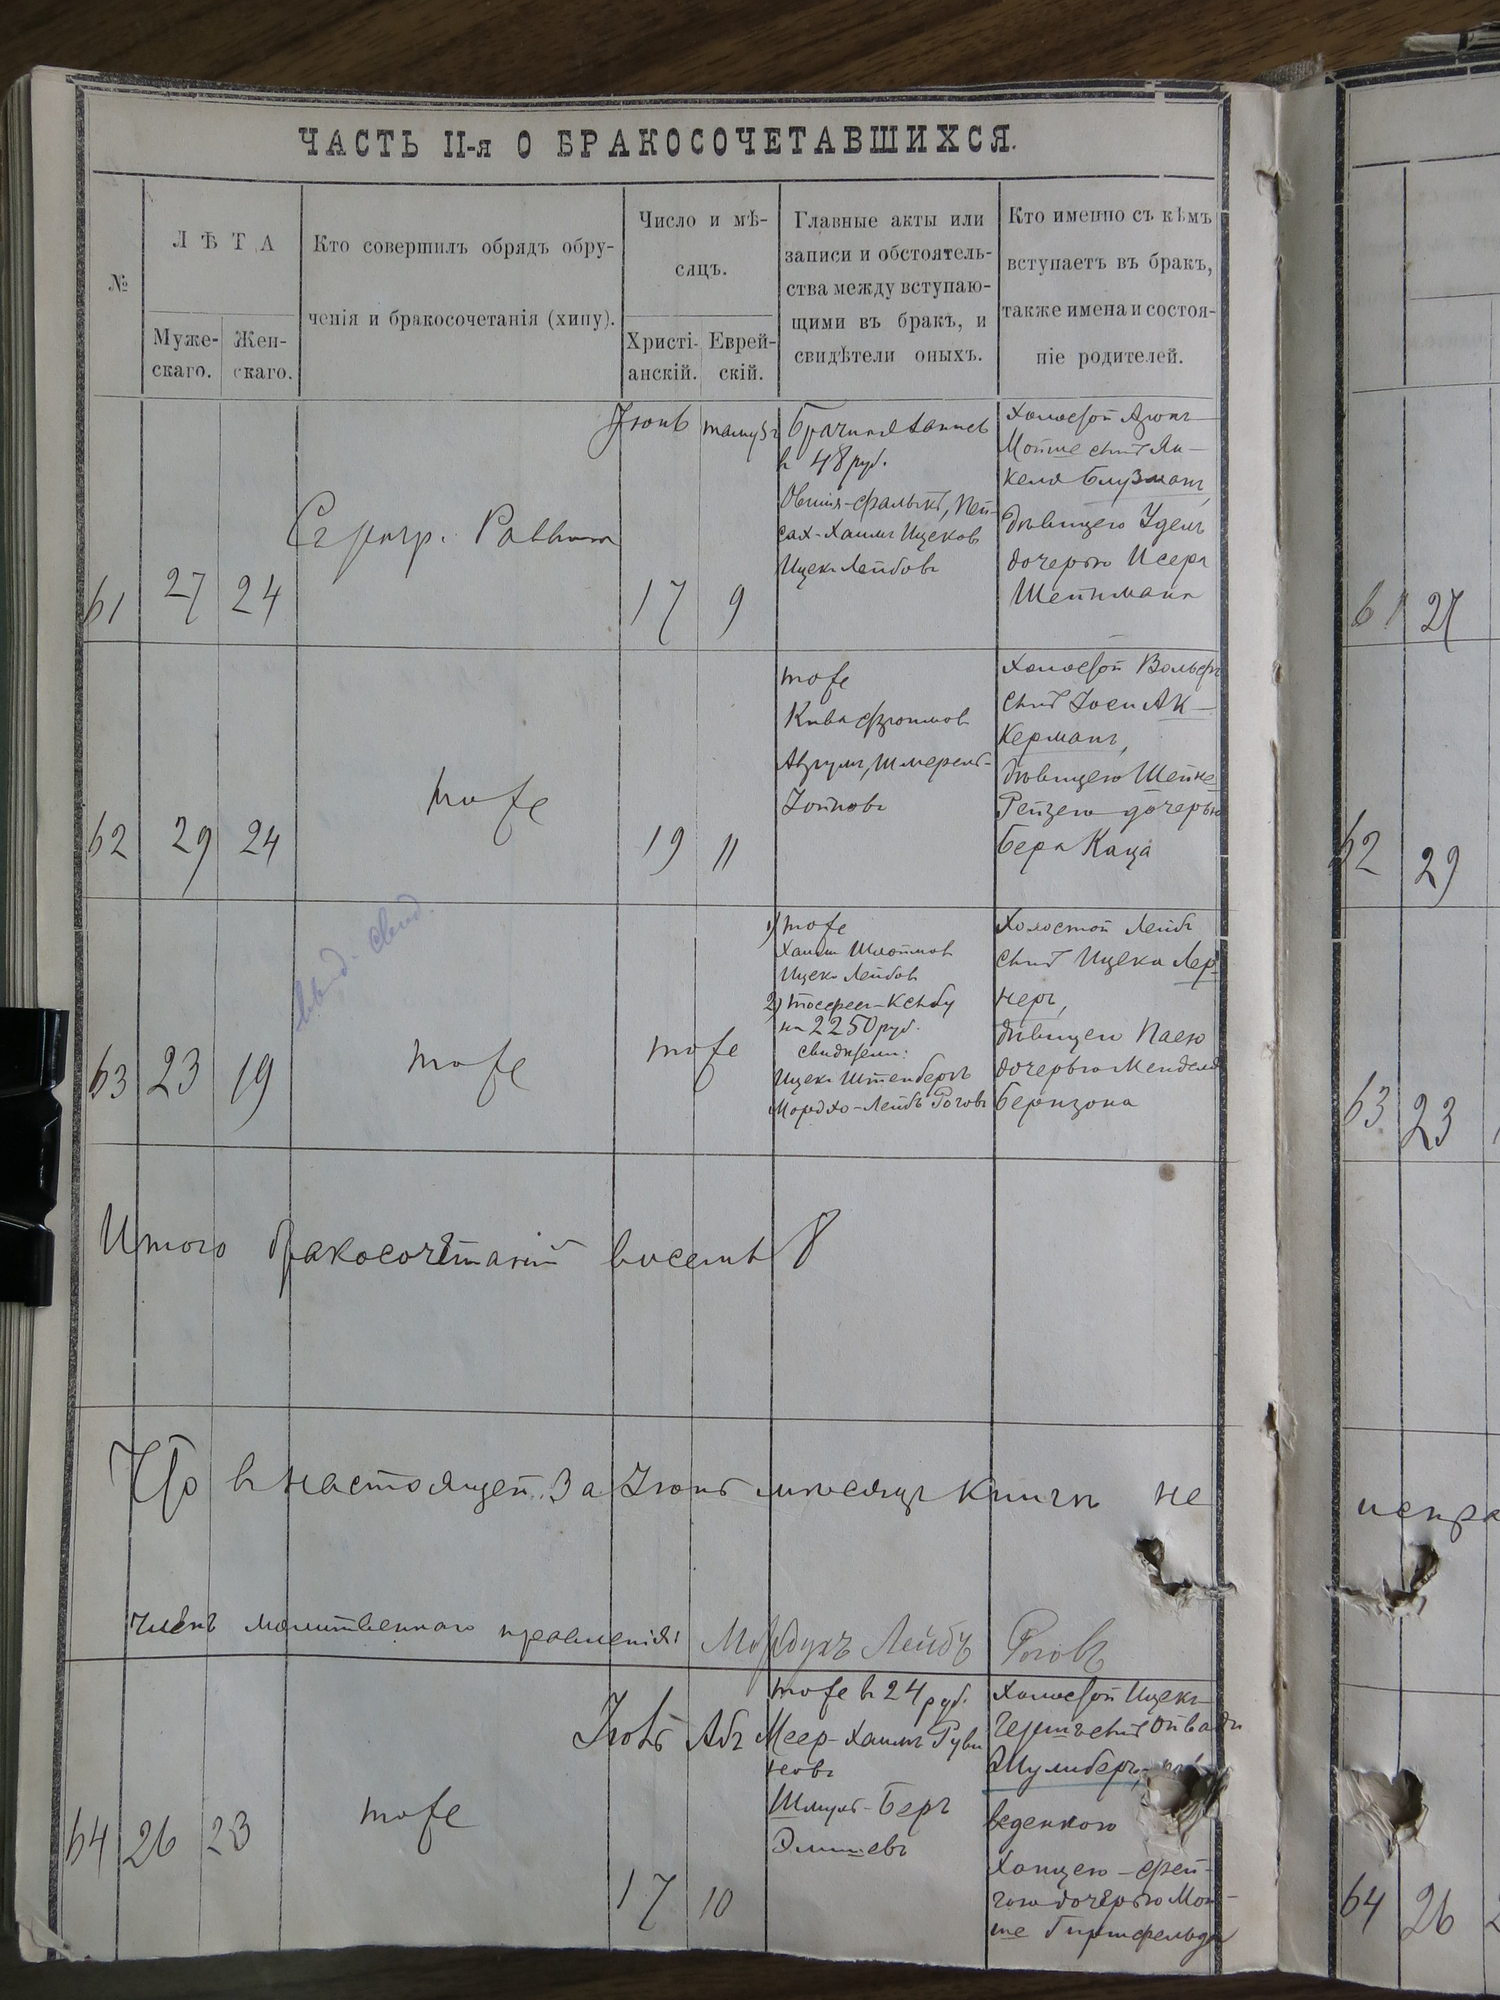 ЧАСТЬ II-я О БРАКОСОЧЕТАВШИХСЯ.
№
ЛѢТА
Муже-
скаго.
Жен-
скаго.
Кто совершилъ обрядъ обру-
ченія и бракосочетанія (хипу).
Число и мѣ-
сяцъ.
Христі-
анскій.
Еврей-
скій.
Главные акты или
записи и обстоятель-
ства между вступаю-
щими въ бракъ, и
свидѣтели оныхъ.
Кто именно съ кѣмъ
вступаетъ въ бракъ,
также имена и состоя-
ніе родителей.
61
27
24
Раввинъ
Іюнь
17
тамузъ
9
в 48 руб.
сах-Хаимъ Ицеков
Ицекъ Лейбовъ
Холостой
Мойше сынъ Ян-
келя Блузманъ,
дѣвицею Удель
дочерью Исера
Шейнмана
62
29
24
тоже
19
11
тоже
Холостой Вольфъ
сынъ Іоси Ак-
керманъ,
дѣвицею Шейне
Рейзею дочерью
Бера Каца
63
23
19
выд. свид.
тоже
тоже
1) тоже
Хаим Шлоймов
Ицекъ Лейбов
2) тосефес-Ксубу
на 2250 руб.
свидѣтели:
Ицекъ Штенбергъ
Мордхо-Лейбъ Роговъ
Холостой Лейбъ
сынъ Ицека Лер-
неръ,
дѣвицею Паею
дочерью Менделя
Беринзона
Итого бракосочетаній восемь 8
Что в настоящей за Іюнь мѣсяцъ книгѣ не
испра
членъ молитвеннаго правленія: Мордухъ Лейбъ Роговъ
64
26
23
тоже
Іюль
17
Абъ
10
тоже в 24 руб.
Меер-Хаимъ Руви
новъ
Шмуль-Беръ
Элишевъ
Холостой Ицекъ-
Гершъ сынъ
Шулиберъ,
веденною
Ханцею-Фей-
гою дочерью Мой-
ше Гиршфельда
61 27
62 29
63 23
64 26